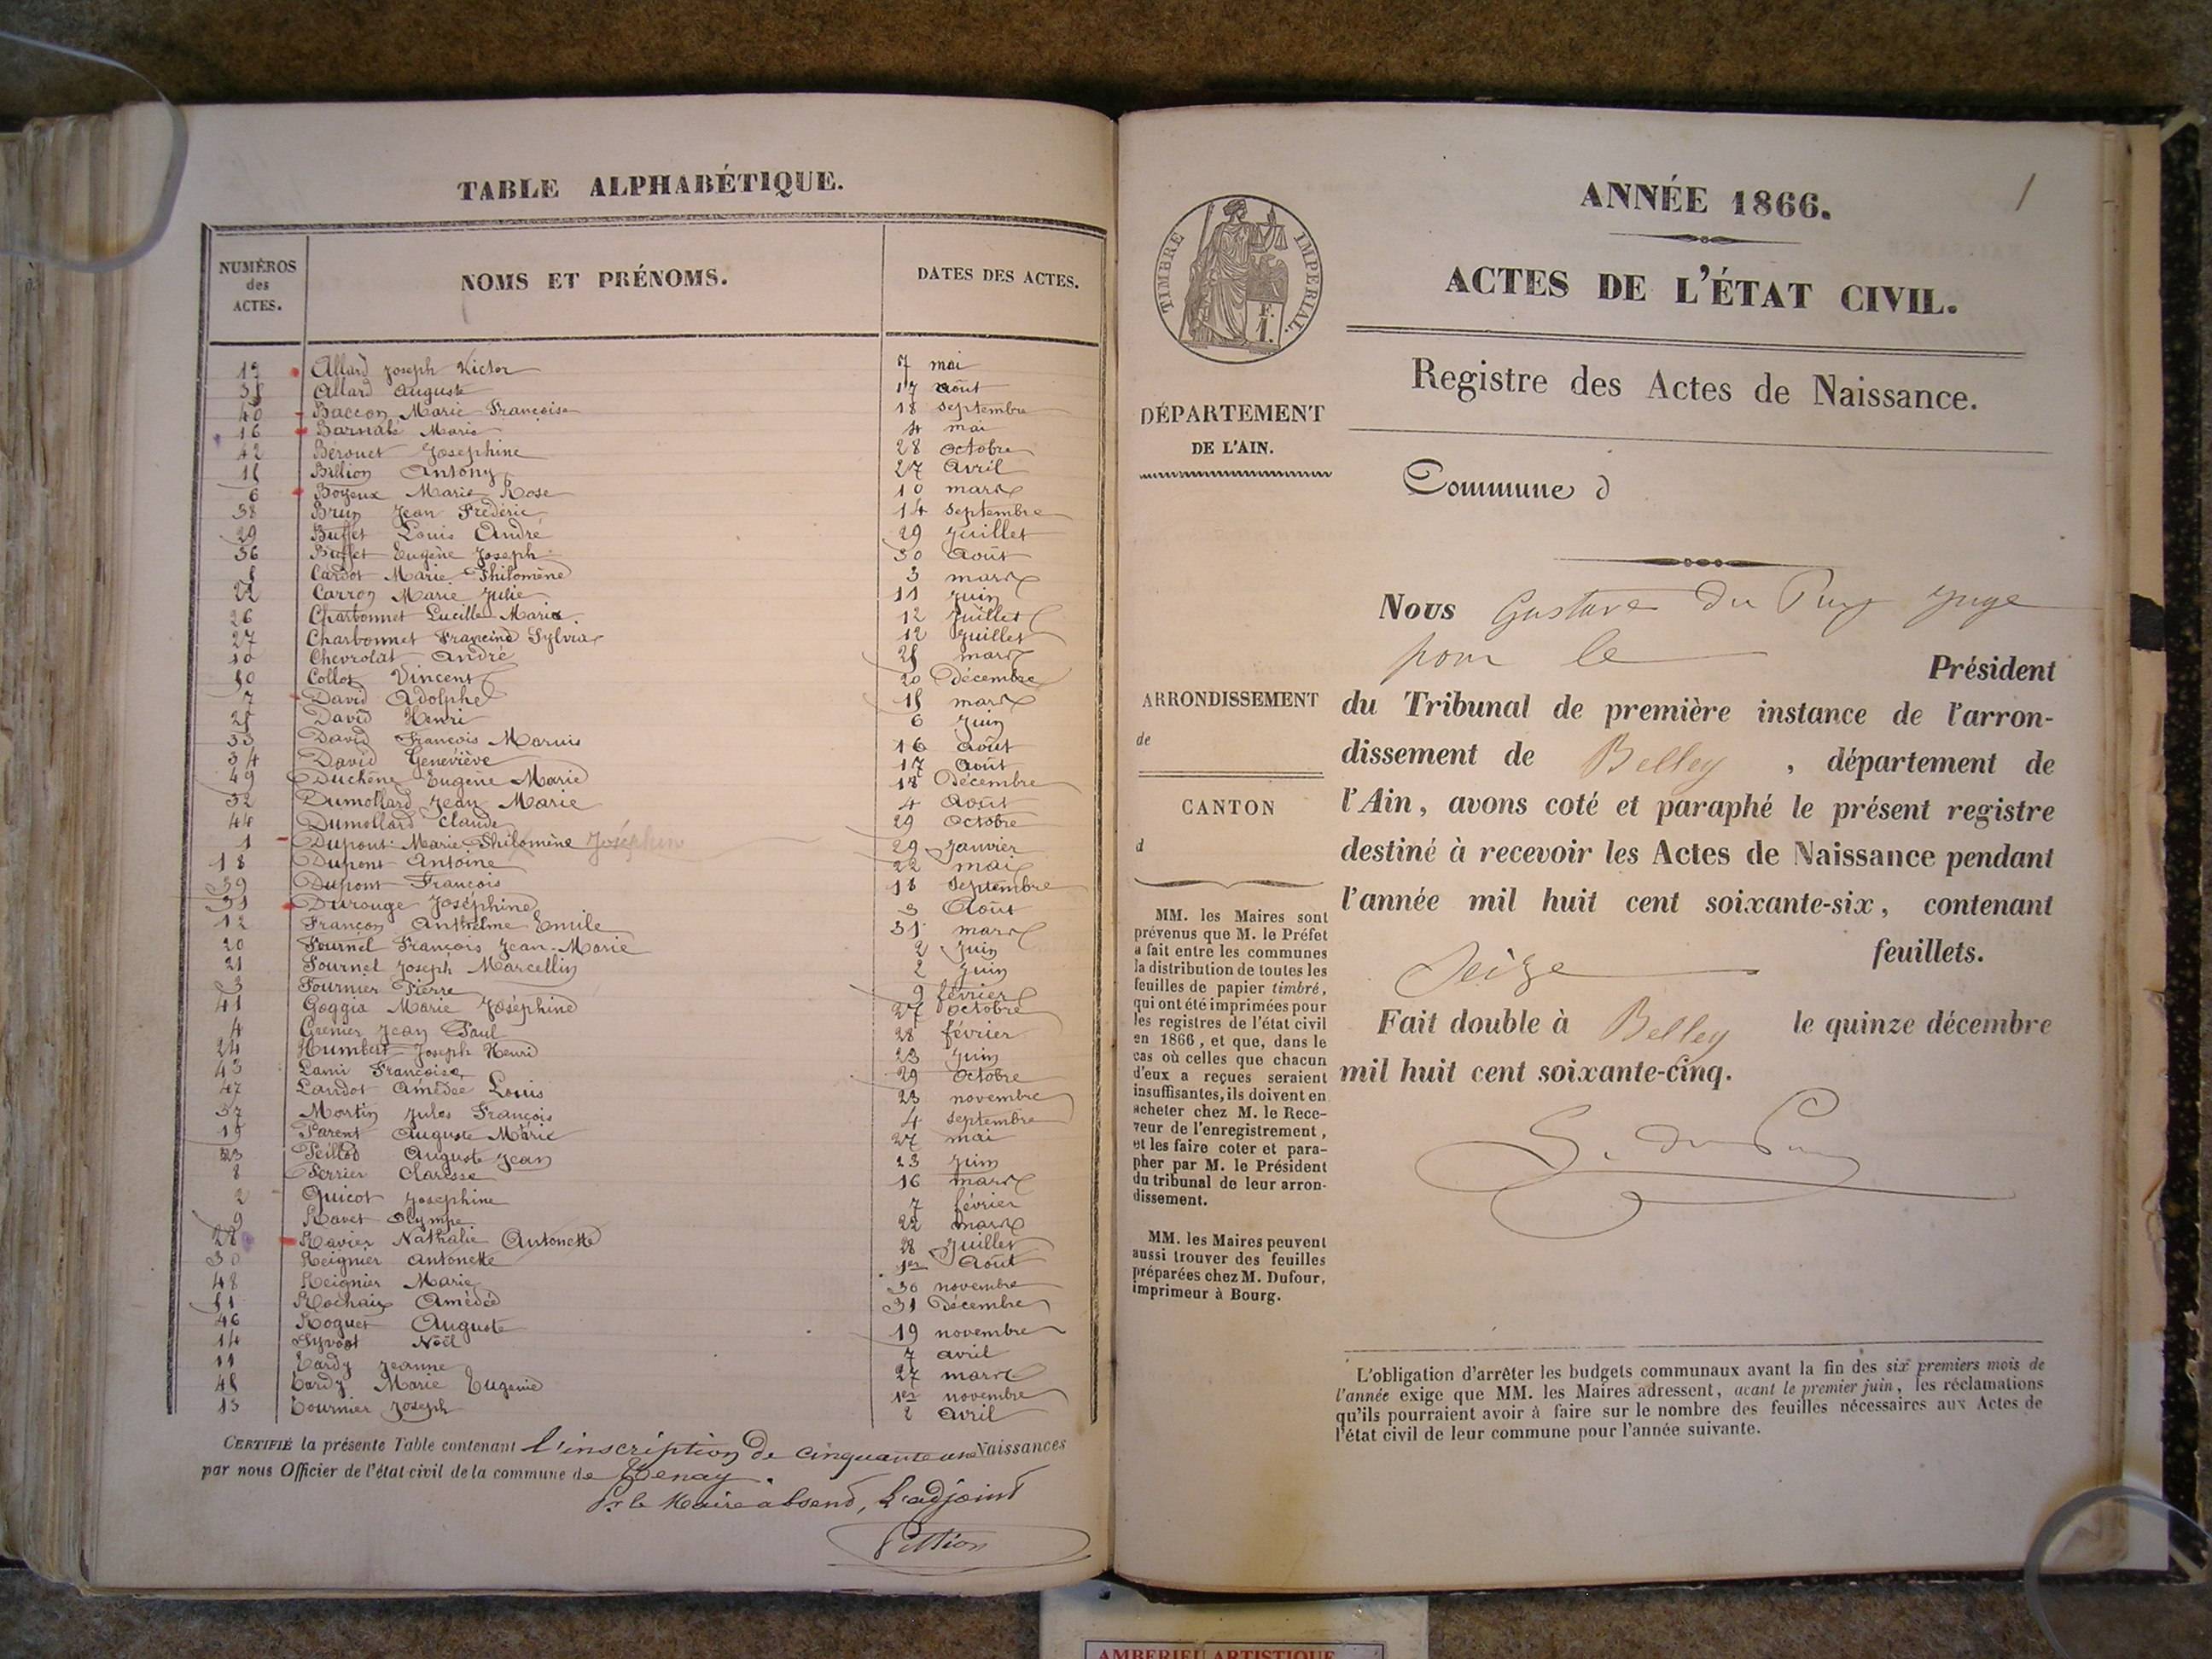 TABLE ALPHABÉTIQUE.
NUMÉROS
des
ACTES.
NOMS ET PRÉNOMS.
DATES DES ACTES.
17 Allard Joseph Victor 7 mai
35 Allard Auguste 17 août
40 Baccon Marie Françoise 18 septembre
16 Barnabé Marie 4 mai
42 Bérouet Joséphine 28 octobre
15 Billion Antony 27 avril
6 Boyeux Marie Rose 10 mars
38 Brun Jean Frédéric 14 septembre
29 Buffet Louis André 29 juillet
36 Buffet Eugène Joseph 30 août
5 Cardot Marie Philomène 3 mars
22 Carron Marie Julie 11 juin
26 Charbonnet Lucille Maria. 12 juillet
27 Charbonnet Francine Sylvia 12 juillet
10 Chevrolat André 25 mars
50 Collot Vincent 20 Décembre
7 David Adolphe 15 mars
25 David Henri 6 juin
33 David François Marius 16 août
34 David Geneviève 17 août
49 Duchêne Eugène Marie 18 Décembre
32 Dumollard Jean Marie 4 août
44 Dumollard Claude 29 octobre
1 Dupont Marie Philomène Joséphine 29 janvier
18 Dupont Antoine 22 mai
39 Dupont François 18 septembre
31 Durouge Joséphine 3 août
12 Françon Anthelme Emile 31 mars
20 Fournel François Jean-Marie 2 juin
21 Fournel Joseph Marcellin 2 juin
3 Fournier Pierre 9 février
41 Goggia Marie Joséphine 27 octobre
4 Grenier Jean Paul 28 février
24 Humbert Joseph Henri 23 juin
43 Lami Françoise 29 octobre
47 Landot Amédée Louis 23 novembre
37 Martin Jules François 4 septembre
19 Parent Auguste Marie 27 mai
23 Peillod Auguste Jean 23 juin
8 Perrier Claresse 16 mars
2 Quicot Joséphine 7 février
9 Ravet Olympe 22 mars
28 Ravier Nathalie Antonette 28 juillet
30 Reignier Antonette 1er août
48 Reignier Marie 30 novembre
51 Rochaix Amédée 31 Décembre
46 Roguet Auguste 19 novembre
14 Syvoat Noël 7 avril
11 Tardy Jeanne 27 mars
45 Tardy Marie Eugénie 1er novembre
13 Tournier Joseph 2 avril
CERTIFIÉ la présente Table contenant l'inscription de cinquante une Naissances
par nous Officier de l'état civil de la commune de Tenay.
Pr le Maire absent, L'adjoint
Pittion
1
TIMBRE IMPÉRIAL.
F.
1.
ANNÉE 1866.
ACTES DE L'ÉTAT CIVIL.
Registre des Actes de Naissance.
DÉPARTEMENT
DE L'AIN.
Commune d
ARRONDISSEMENT
de
CANTON
d
MM. les Maires sont
prévenus que M. le Préfet
a fait entre les communes
la distribution de toutes les
feuilles de papier timbré,
qui ont été imprimées pour
les registres de l'état civil
en 1866, et que, dans le
cas où celles que chacun
d'eux a reçues seraient
insuffisantes, ils doivent en
acheter chez M. le Rece-
veur de l'enregistrement,
et les faire coter et para-
pher par M. le Président
du tribunal de leur arron-
dissement.
MM. les Maires peuvent
aussi trouver des feuilles
préparées chez M. Dufour,
imprimeur à Bourg.
Nous Gustave Du Puy juge
pour le Président
du Tribunal de première instance de l'arron-
dissement de Belley , département de
l'Ain, avons coté et paraphé le présent registre
destiné à recevoir les Actes de Naissance pendant
l'année mil huit cent soixante-six, contenant
Seize feuillets.
Fait double à Belley le quinze décembre
mil huit cent soixante-cinq.
G. du Puy
L'obligation d'arrêter les budgets communaux avant la fin des six premiers mois de
l'année exige que MM. les Maires adressent, avant le premier juin, les réclamations
qu'ils pourraient avoir à faire sur le nombre des feuilles nécessaires aux Actes de
l'état civil de leur commune pour l'année suivante.
AMBERIEU ARTISTIQUE